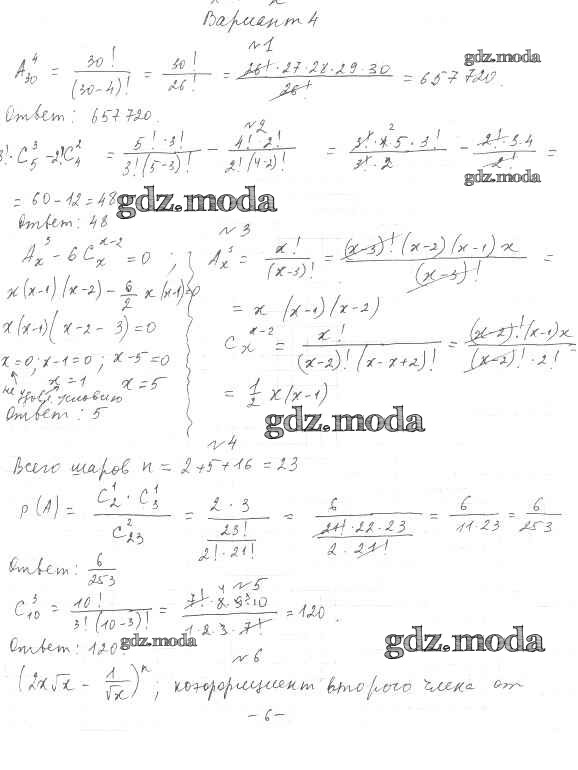 Вариант 4
№1
A_{30}^4 = 30! / (30-4)! = 30! / 26! = 26! · 27 · 28 · 29 · 30 / 26! = 657720.
gdz.moda
Ответ: 657720.
№2
3! · C_5^3 - 2! C_4^2 = 5! · 3! / 3!(5-3)! - 4! · 2! / 2!(4-2)! = 3! · 4 · 5 · 3! / 3! · 2 - 2! · 3 · 4 / 2! =
gdz.moda
= 60 - 12 = 48
gdz.moda
Ответ: 48
№3
A_x^3 - 6 C_x^{x-2} = 0 ;
x(x-1)(x-2) - 6/2 x(x-1) = 0
x(x-1)(x-2-3) = 0
x=0; x-1=0; x-5=0
x=1 x=5
не удовл. условию
Ответ: 5
A_x^3 = x! / (x-3)! = (x-3)!(x-2)(x-1)x / (x-3)! =
= x(x-1)(x-2)
C_x^{x-2} = x! / (x-2)!(x-x+2)! = (x-2)!(x-1)x / (x-2)! · 2! =
= 1/2 x(x-1)
gdz.moda
№4
Всего шаров n = 2+5+16 = 23
P(A) = C_2^1 · C_3^1 / C_{23}^2 = 2 · 3 / (23! / 2! · 21!) = 6 / (21! · 22 · 23 / 2 · 21!) = 6 / 11·23 = 6 / 253
Ответ: 6/253
№5
C_{10}^3 = 10! / 3!(10-3)! = 7! · 8 · 9 · 10 / 1 · 2 · 3 · 7! = 120.
Ответ: 120.
gdz.moda
gdz.moda
№6
(2x√x - 1/√x)^n ; коэффициент второго члена от
- 6 -